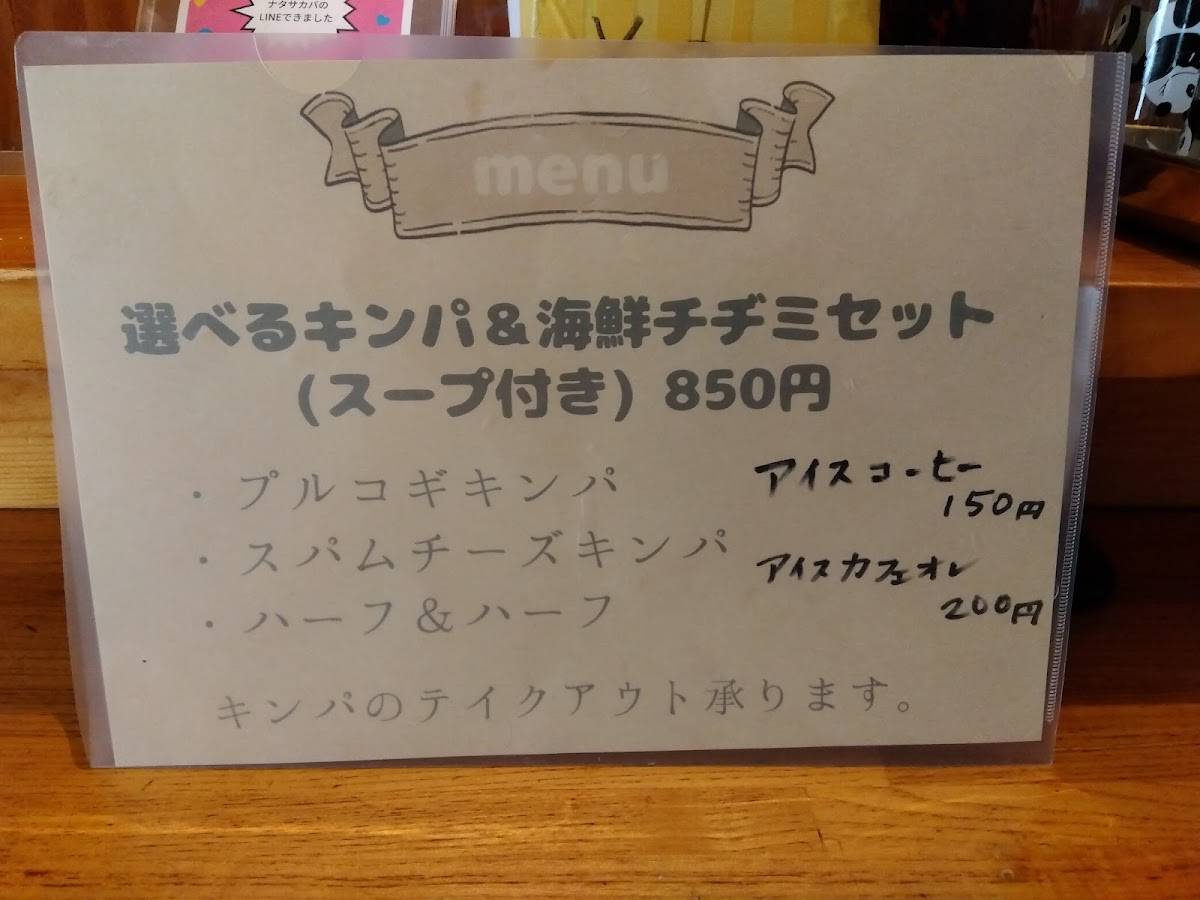 ナタサカバの
LINEできました
menu
選べるキンパ&海鮮チヂミセット
(スープ付き) 850円
・プルコギキンパ
・スパムチーズキンパ
・ハーフ&ハーフ
アイスコーヒー
150円
アイスカフェオレ
200円
キンパのテイクアウト承ります。